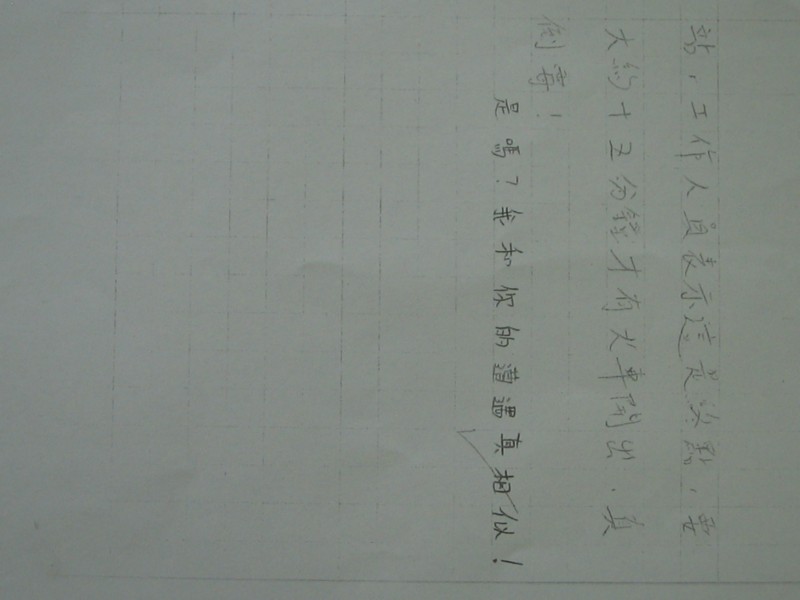 站，工作人員表示這是終點，要
大約十五分鐘才有火車開出，真
倒霉！
是嗎？我和你的遭遇真相似！